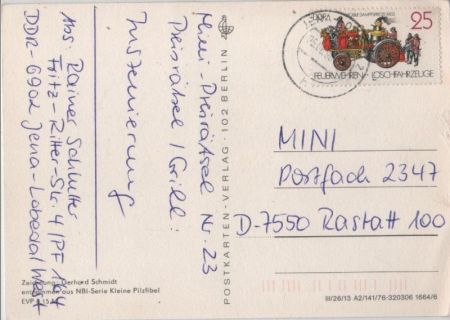 Abs. Rainer Schlutter
Fritz-Ritter-Str. 4/PF 164
DDR-6902 Jena-Lobeda/West
Mini-Preisrätsel Nr. 23
Preisrätsel / Grill:
Inszenierung
Zeichnung: Gerhard Schmidt
entnommen aus NBI-Serie Kleine Pilzfibel
EVP 0,15 M
POSTKARTEN-VERLAG · 102 BERLIN
25
FEUERWEHREN - LÖSCHFAHRZEUGE
MINI
Postfach 2347
D-7550 Rastatt 100
III/26/13 A2/141/76-320306 1664/6